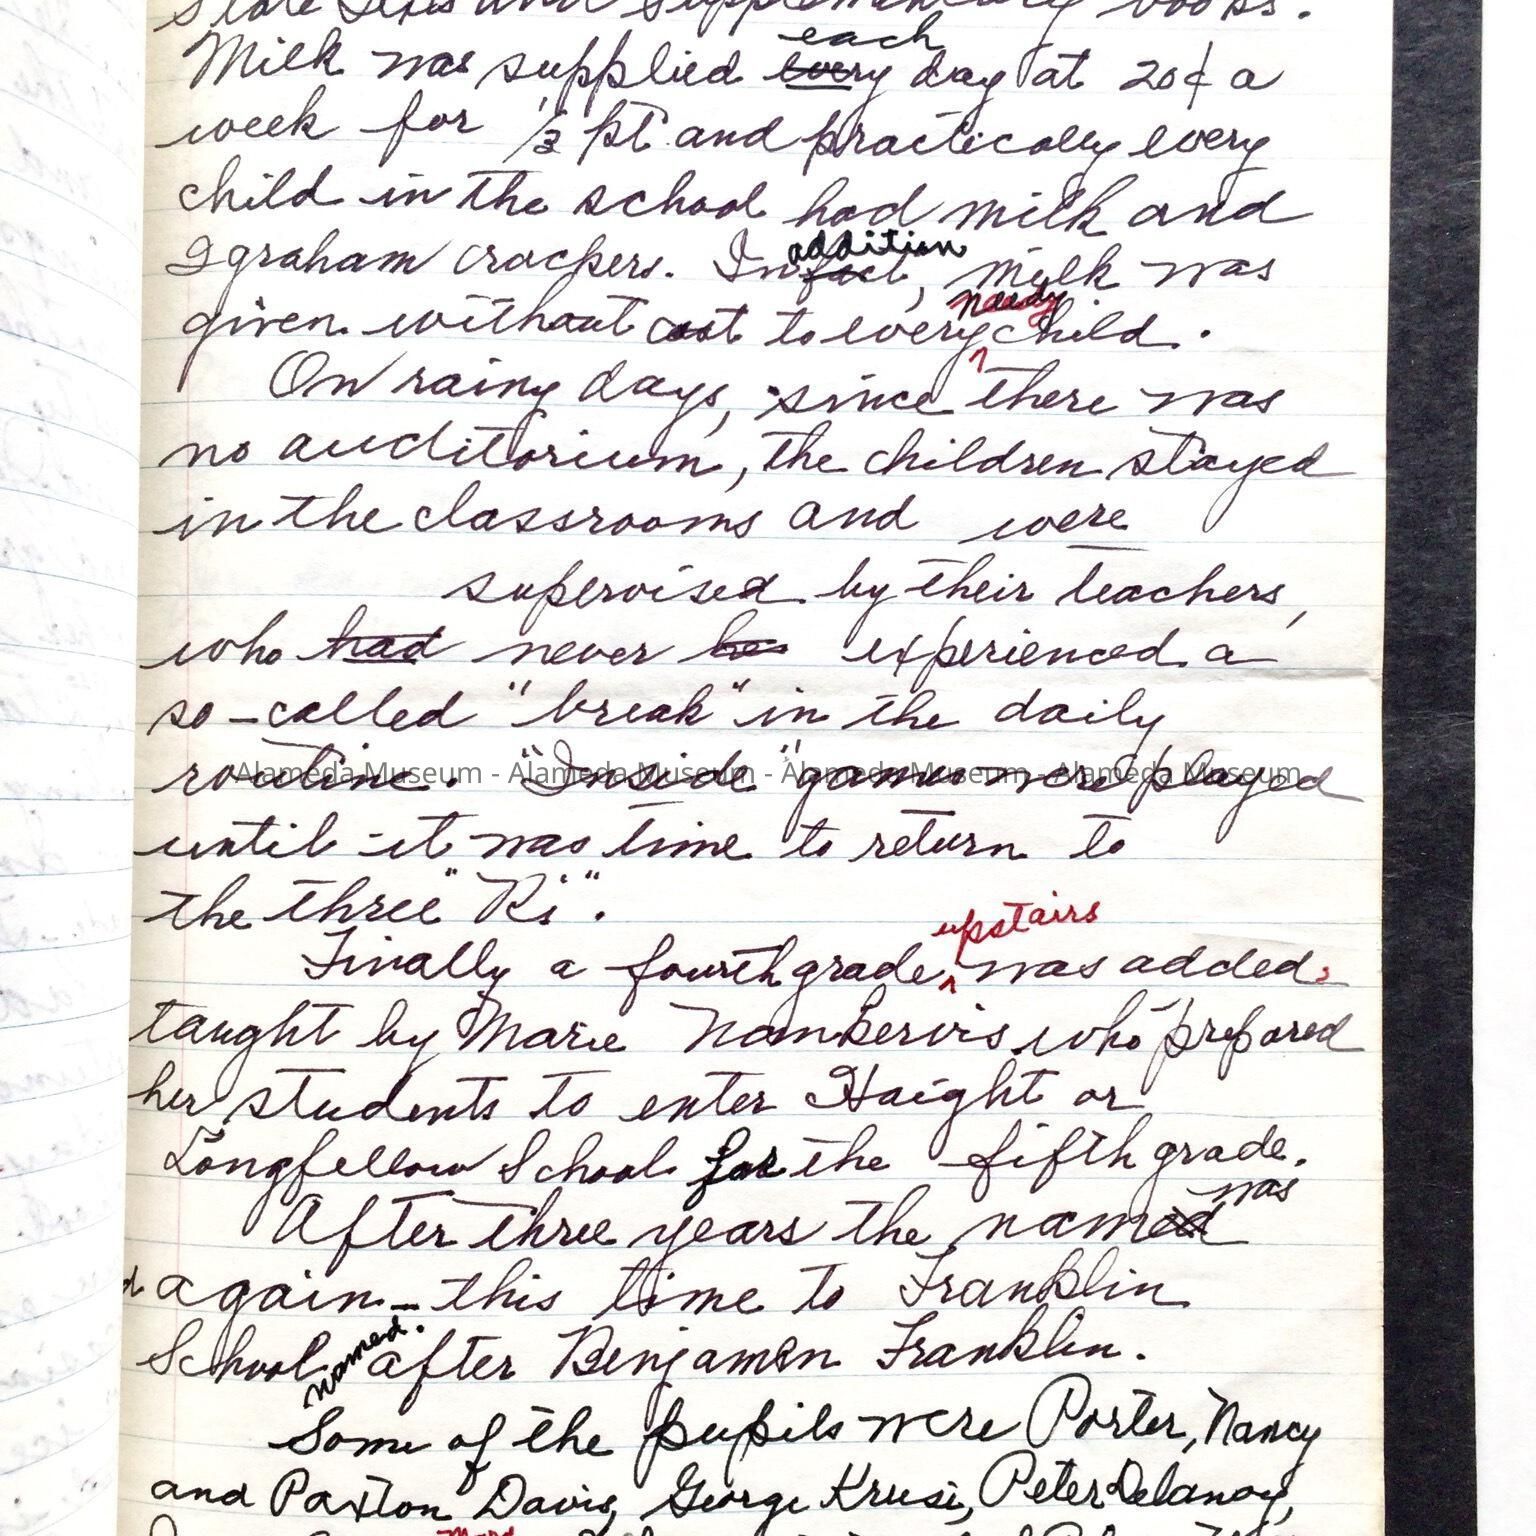 State Texts and Supplementary books.
Milk was supplied every each day at 20¢ a
week for 1/2 pt and practically every
child in the school had milk and
2 graham crackers. In fact addition, milk was
given without cost to every needy child.
On rainy days, since there was
no auditorium, the children stayed
in the classrooms and were
supervised by their teachers,
who had never be experienced a
so-called "break" in the daily
routine. "Inside" games were played
until it was time to return to
the three "Rs".
Finally a fourth grade, upstairs was added,
taught by Marie who prepared
her students to enter Haight or
Longfellow School for the fifth grade.
After three years the named was
again - this time to Franklin
School, named after Benjamin Franklin.
Some of the pupils were Porter, Nancy
and Paxton Davis, George Krusi, Peter Delanoy,
Alameda Museum - Alameda Museum - Alameda Museum - Alameda Museum